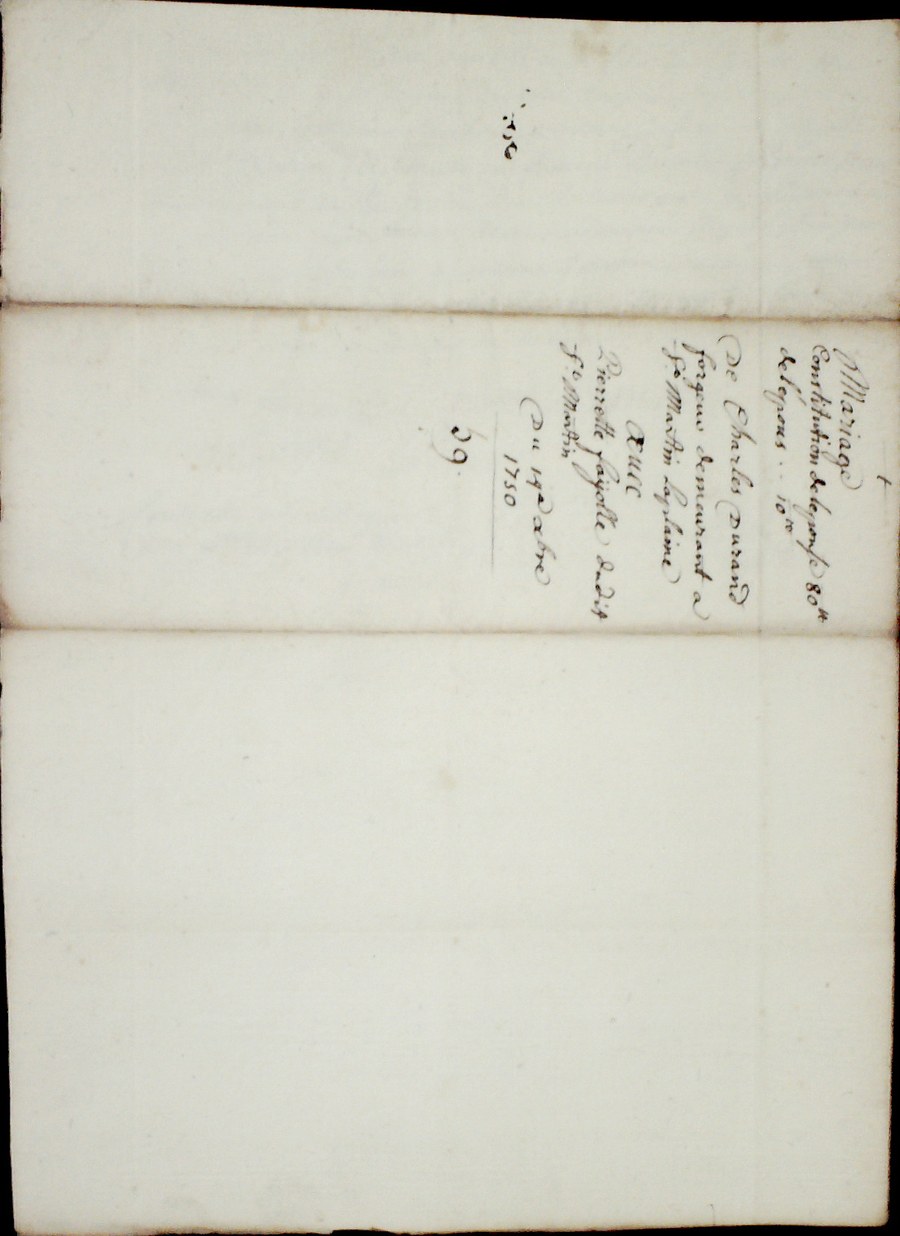 +
Mariage
Constitution delepouse 80ᵗᵗ
del'epous .. 10ᵗᵗ
De Charles Durand
forgeur demeurant a
Sᵗ Martin Laplaine
Avec
Pierrette fayolle dudit
Sᵗ Martin
Du 19ᵉ xbre
1750
59.